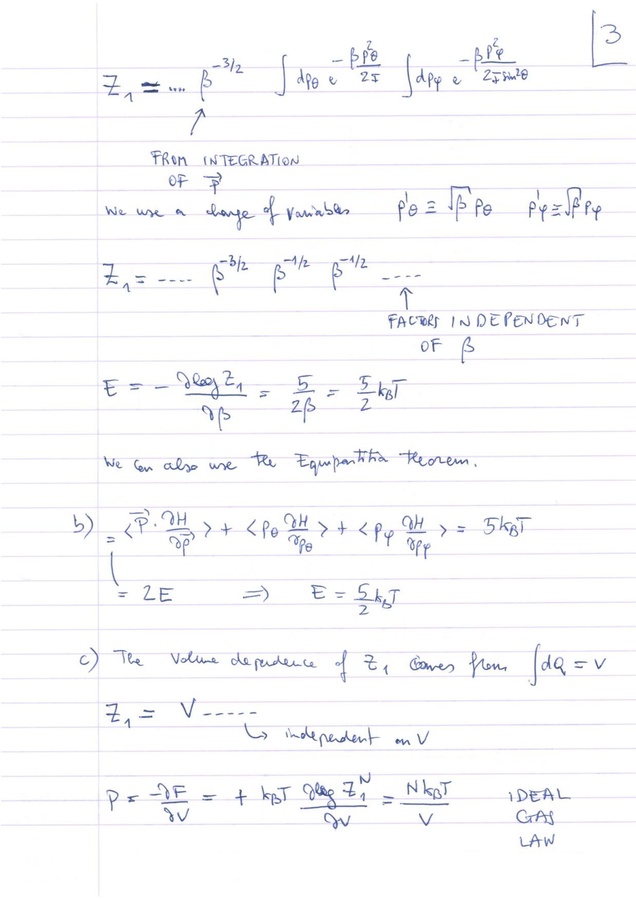 3
Z₁ = .... β^(-3/2) ∫dp_θ e^(-βp_θ²/2I) ∫dp_φ e^(-βp_φ²/2I sin²θ)
FROM INTEGRATION
OF p⃗
We use a change of variables p'_θ ≡ √β p_θ p'_φ ≡ √β p_φ
Z₁ = ---- β^(-3/2) β^(-1/2) β^(-1/2) ----
FACTORS INDEPENDENT
OF β
E = - ∂log Z₁/∂β = 5/2β = 5/2 k_BT
We can also use the Equipartition theorem.
b) = <p⃗ · ∂H/∂p⃗> + <p_θ ∂H/∂p_θ> + <p_φ ∂H/∂p_φ> = 5k_BT
= 2E ⇒ E = 5/2 k_BT
c) The Volume dependence of Z₁ comes from ∫dQ = V
Z₁ = V -----
↳ independent on V
P = -∂F/∂V = + k_BT ∂log Z₁^N/∂V = Nk_BT/V IDEAL
GAS
LAW